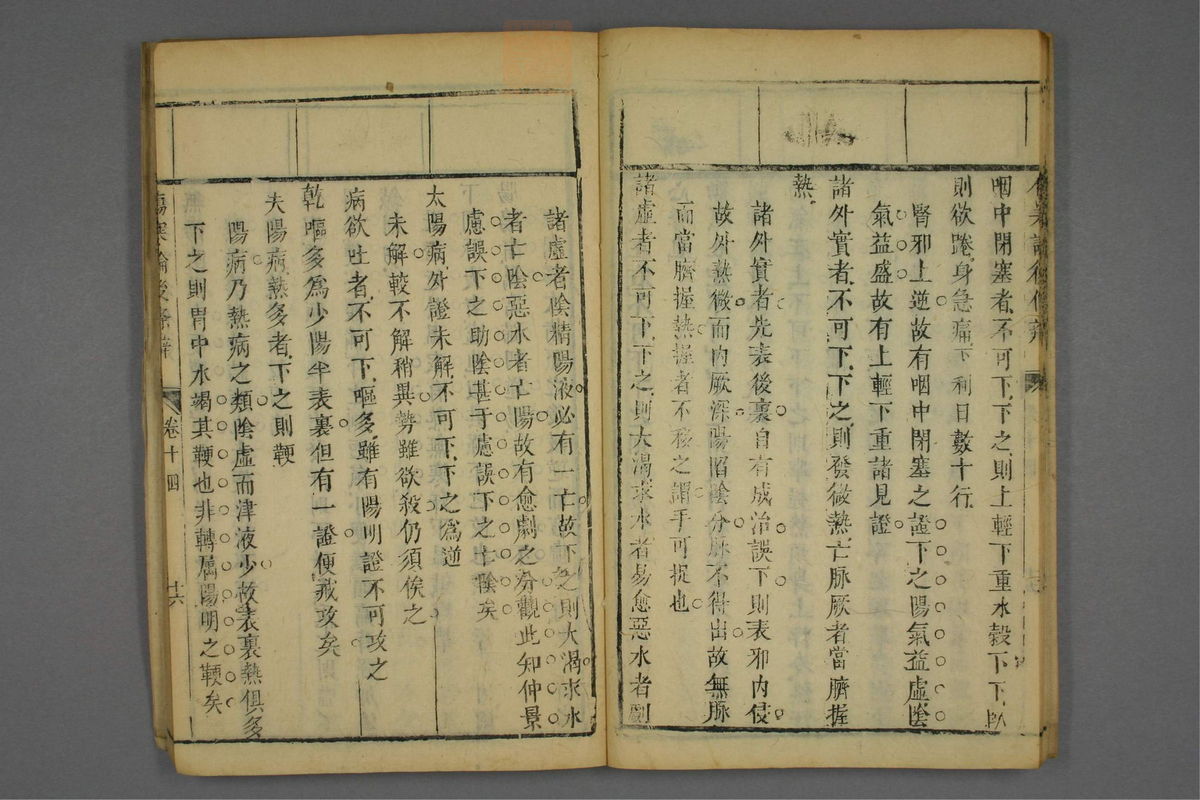 咽中閉塞者不可下下之則上輕下重水穀不下臥
則欲踡身急痛下利日數十行
腎邪上逆故有咽中閉塞之證下之陽氣益虛陰
氣益盛故有上輕下重諸見證
諸外實者不可下下之則發微熱亡脉厥者當臍握
熱
諸外實者先表後裏自有成治誤下則表邪內侵
故外熱微而內厥深陽陷陰分脉不得出故無脉
而當臍握熱握者不移之謂手可捉也
諸虛者不可下下之則大渴求水者易愈惡水者劇
諸虛者陰精陽液必有一亡故下之則大渴求水
者亡陰惡水者亡陽故有愈劇之分觀此知仲景
慮誤下之助陰甚于慮誤下之亡陰矣
太陽病外證未解不可下下之爲逆
未解較不解稍異勢雖欲殺仍須俟之
病欲吐者不可下嘔多雖有陽明證不可攻之
乾嘔多爲少陽半表裏但有一證便戒攻矣
夫陽病熱多者下之則鞕
陽病乃熱病之類陰虛而津液少故表裏熱俱多
下之則胃中水竭其鞕也非轉屬陽明之鞕矣
傷寒論後條辨
卷十四
六